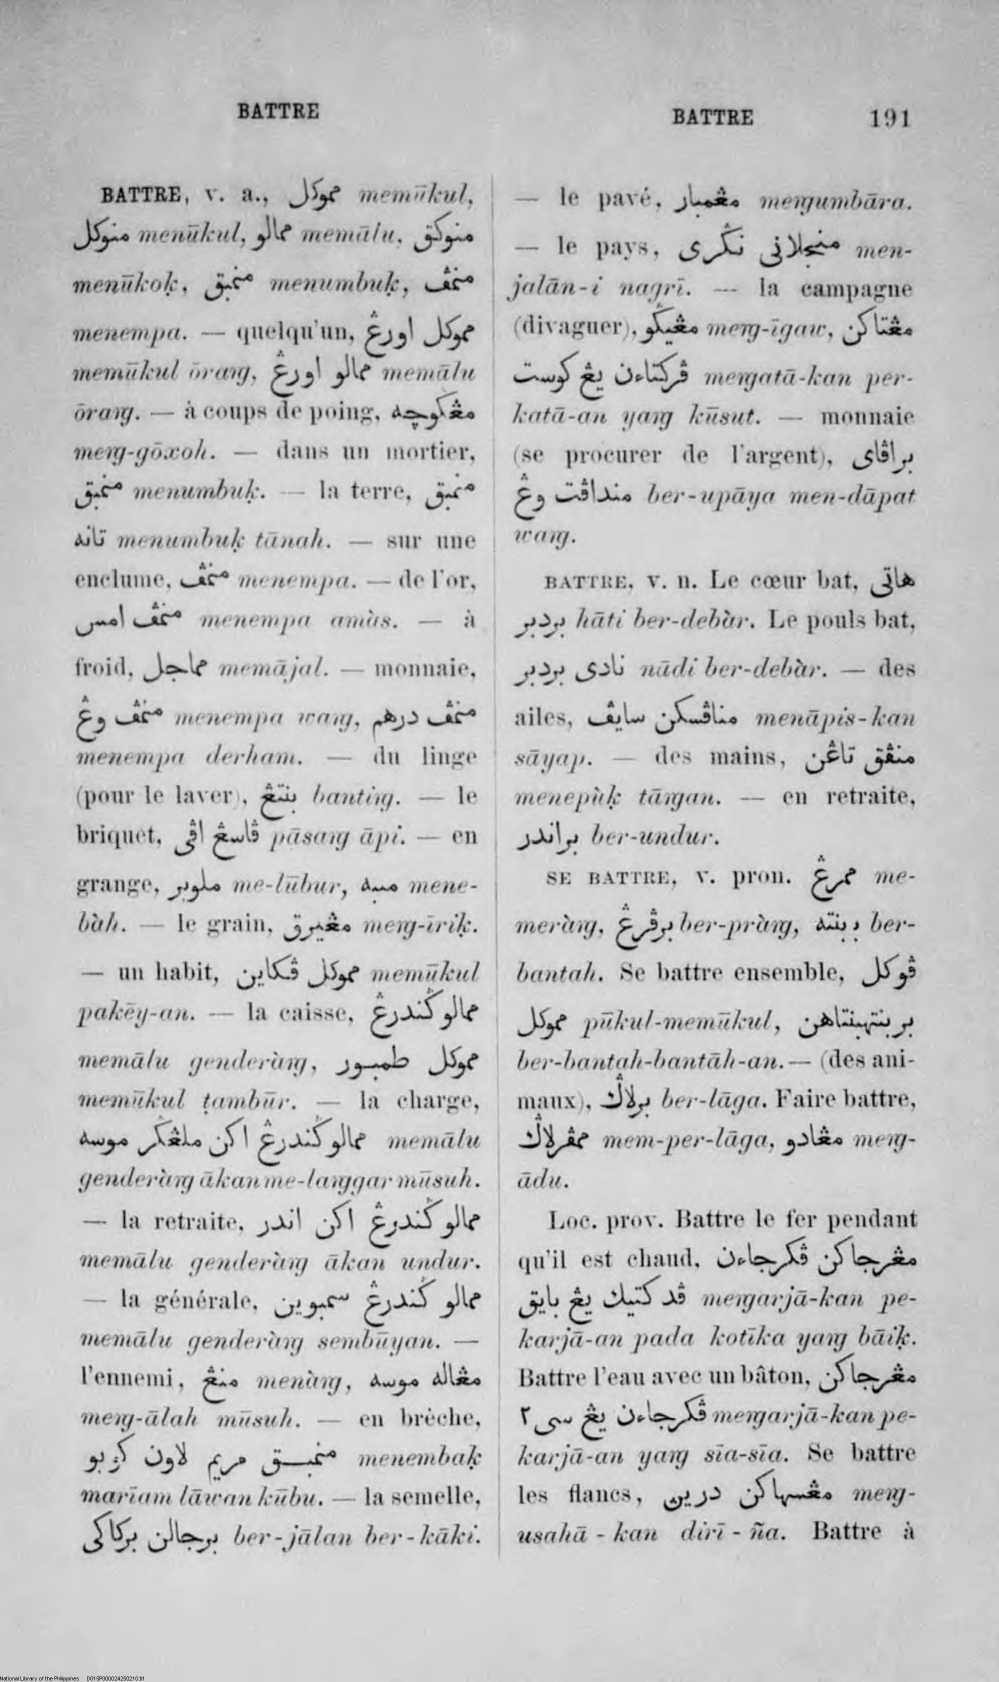 BATTRE
BATTRE 191
BATTRE, v. a., مموكل memūkul,
منوكل menūkul, ممالو memālu, منوكق
menūkoḳ, منمبق menumbuḳ, منمڤ
menempa. — quelqu'un, مموكل اورڠ
memūkul ōraŋg, ممالو اورڠ memālu
ōraŋg. — à coups de poing, مڠڬوچه
meŋg-gōxoh. — dans un mortier,
منمبق menumbuḳ. — la terre, منمبق
تانه menumbuḳ tānah. — sur une
enclume, منمڤ menempa. — de l'or,
منمڤ امس menempa amàs. — à
froid, مماجل memājal. — monnaie,
منمڤ وڠ menempa waŋg, منمڤ درهم
menempa derham. — du linge
(pour le laver), بنتڠ bantiŋg. — le
briquet, ڤاسڠ اڤى pāsaŋg āpi. — en
grange, ملوبر me-lūbur, منبه mene-
bàh. — le grain, مڠيرق meŋg-īriḳ.
— un habit, مموكل ڤكاين memūkul
pakēy-an. — la caisse, ممالو ڬندرڠ
memālu genderàŋg, مموكل طمبور
memūkul ṭambūr. — la charge,
ممالو ڬندرڠ اكن ملڠڬر موسه memālu
genderàŋg ākan me-laŋggar mūsuh.
— la retraite, ممالو ڬندرڠ اكن اندر
memālu genderàŋg ākan undur.
— la générale, ممالو ڬندرڠ سمبوين
memālu genderàŋg sembūyan. —
l'ennemi, منڠ menàŋg, مڠاله موسه
meŋg-ālah mūsuh. — en brèche,
منمبق مريم لاون كوبو menembaḳ
marīam lāwan kūbu. — la semelle,
برجالن بركاكى ber-jālan ber-kāki.
— le pavé, مڠمبار meŋgumbāra.
— le pays, منجلانى نڬرى men-
jalān-i nagrī. — la campagne
(divaguer), مڠيڬو meŋg-īgaw, مڠتاكن
ڤركتاءن يڠ كوست meŋgatā-kan per-
katā-an yaŋg kūsut. — monnaie
(se procurer de l'argent), براڤاى
منداڤت وڠ ber-upāya men-dāpat
waŋg.
BATTRE, v. n. Le cœur bat, هاتى
بردبر hāti ber-debàr. Le pouls bat,
نادى بردبر nādi ber-debàr. — des
ailes, مناڤسكن سايڤ menāpis-kan
sāyap. — des mains, منڤق تاڠن
menepùḳ tāŋgan. — en retraite,
براندر ber-undur.
SE BATTRE, v. pron. ممرڠ me-
meràŋg, برڤرڠ ber-pràŋg, ببنته ber-
bantah. Se battre ensemble, ڤوكل
مموكل pūkul-memūkul, بربنتهبنتاهن
ber-bantah-bantāh-an. — (des ani-
maux), برلاڬ ber-lāga. Faire battre,
ممڤرلاڬ mem-per-lāga, مڠادو meŋg-
ādu.
Loc. prov. Battre le fer pendant
qu'il est chaud, مڠرجاكن ڤكرجاءن
ڤد كتيك يڠ بايق meŋgarjā-kan pe-
karjā-an pada kotīka yaŋg bāiḳ.
Battre l'eau avec un bâton, مڠرجاكن
ڤكرجاءن يڠ سى٢ meŋgarjā-kan pe-
karjā-an yaŋg sīa-sīa. Se battre
les flancs, مڠسهاكن درين meŋg-
usahā-kan dirī-ña. Battre à
National Library of the Philippines